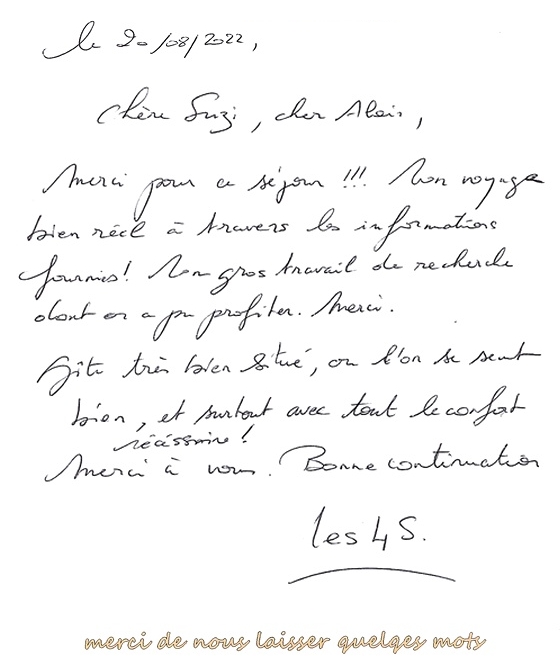 le 20/08/2022,
Chère Suzi, cher Alain,
Merci pour ce séjour !!! Un voyage
bien réel à travers les informations
fournies! Un gros travail de recherche
dont on a pu profiter. Merci.
Gîte très bien situé, où l'on se sent
bien, et surtout avec tout le confort
nécéssaire!
Merci à vous. Bonne continuation
les 4 S.
merci de nous laisser quelges mots